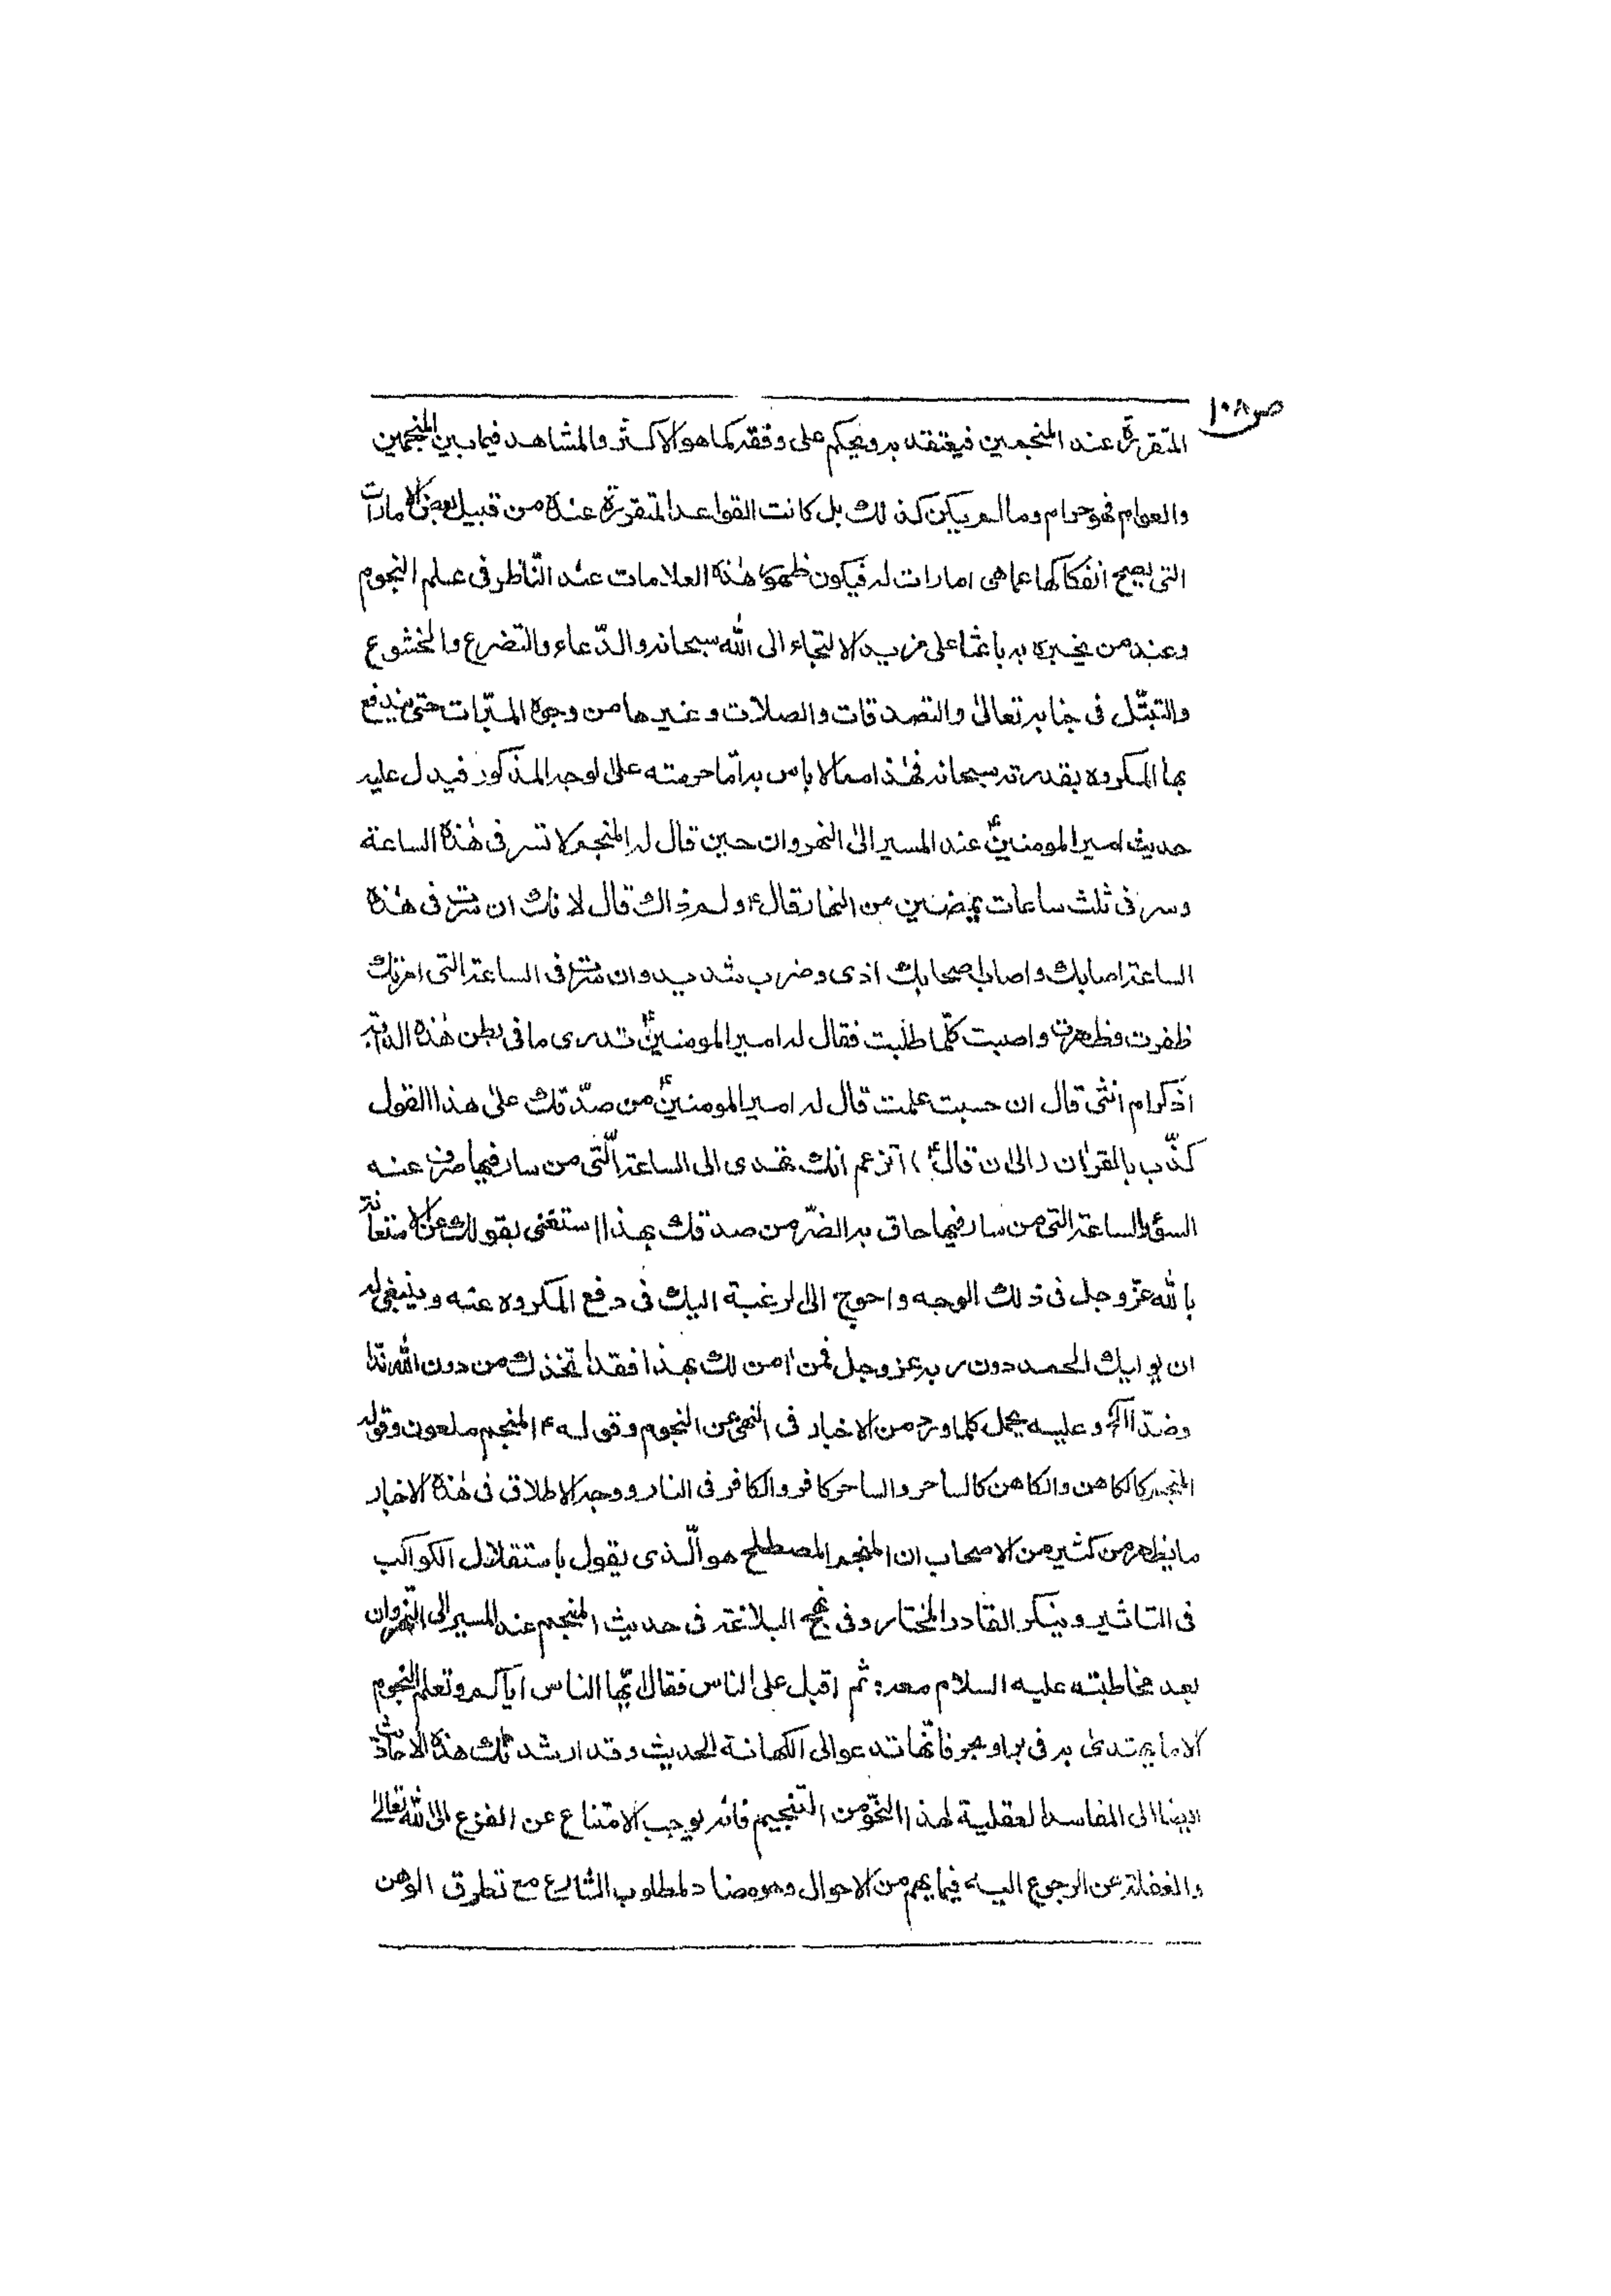 ص١٠٨
المتقررة عند المنجمين فيعتقد به ويحكم على وفقه كما هو الاكثر والمشاهد فيما بين المنجمين
والعوام فهو حرام وما لم يكن كذلك بل كانت القواعد المتقررة عنده من قبيل بعض الامارات
التى يصح انفكاكها عما هى امارات له فيكون ظهور هذه العلامات عند النّاظر فى علم النجوم
وعند من يخبره به باعثا على مزيد الالتجاء الى الله سبحانه والدّعاء والتضرع والخشوع
والتبتّل فى جنابه تعالىٰ والتصدقات والصلات وغيرها من وجوه المبرّات حتى يندفع
بها المكروه بقدرته سبحانه فهٰذا مما لا باس به امّا حرمته على الوجه المذكور فيدل عليه
حديث امير المومنينؑ عند المسير الىٰ النهروان حين قال له المنجم لا تسر فى هٰذه الساعة
وسر فى ثلث ساعات يمضين من النهار قالؑ ولم ذاك قال لانك ان سرت فى هٰذه
الساعة اصابك واصاب اصحابك اذى وضرب شديد وان سرت فى الساعة التى امرتك
ظفرت وظهرت واصبت كلّما طلبت فقال له امير المومنينؑ تدرى ما فى بطن هٰذه الدابّة
اذكر ام انثى قال ان حسبت علمت قال له امير المومنينؑ من صدّقك علىٰ هذا القول
كذّب بالقرآن (الىٰ ان قالؑ) اتزعم انك تهدى الى الساعة الّتى من سار فيها صرف عنه
السوٓء والساعة التى من سار فيها حاق به الضرّ من صدقك بهذا استغنى بقولك عن الاستعانة
بالله عزّوجل فى ذلك الوجه واحوج الى الرغبة اليك فى دفع المكروه عنه وينبغى له
ان يوليك الحمد دون ربه عزوجل فمن اٰمن لك بهذا فقد اتخذك من دون الله ندّا
وضدّا الخ وعليه يحمل كلما ورد من الاخبار فى النهى عن النجوم وقولهؑ المنجم ملعون وقوله
المنجم كالكاهن والكاهن كالساحر والساحر كافر والكافر فى النار ووجه الاطلاق فى هٰذه الاخبار
ما يظهر من كثير من الاصحاب ان المنجم المصطلح هو الّذى يقول باستقلال الكواكب
فى التاثير وينكر القادر المختار وفى نهج البلاغة فى حديث المنجم عند المسير الى النهروان
بعد مخاطبته عليه السلام معه: ثم اقبل على الناس فقال ايّها الناس ايّاكم وتعلم النجوم
الا ما يهتدىٰ به فى بر او بحر فانّها تدعو الى الكهانة الحديث وقد ارشدتك هذه الاحاديث
ايضا الى المفاسد العقلية لهذا النحو من التنجيم فانه يوجب الامتناع عن الفزع الى الله تعالىٰ
والغفلة عن الرجوع اليه فيما يهم من الاحوال وهو مضاد لمطلوب الشارع مع تطرق الوهن